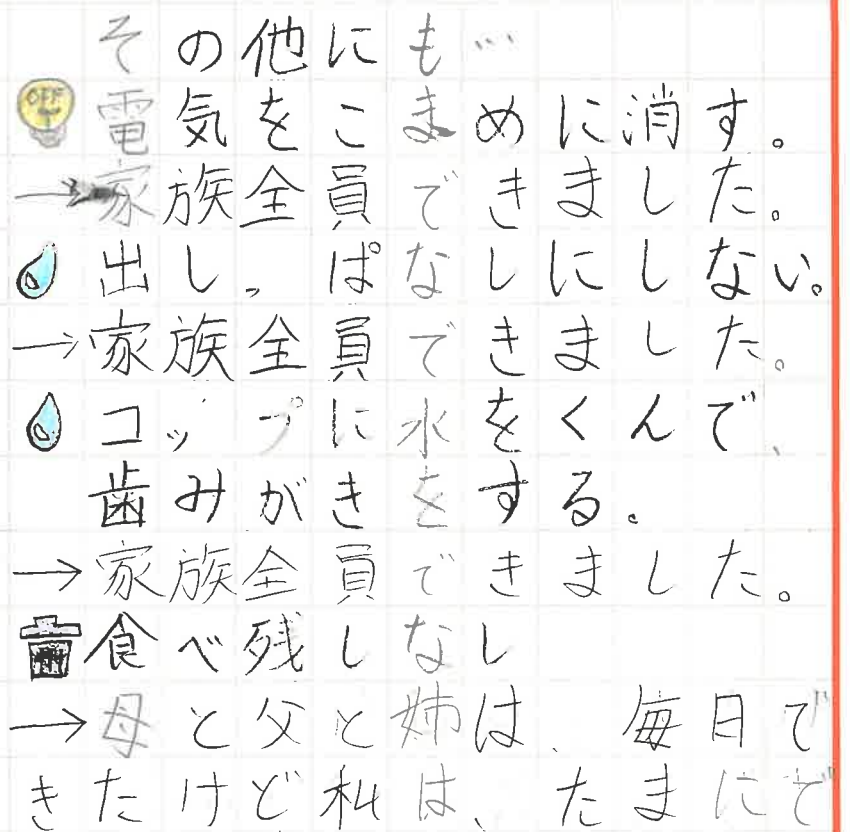 その他にも…
OFF
電気をこまめに消す。
→家族全員できました。
出しっぱなしにしない。
→家族全員できました。
コップに水をくんで、
歯みがきをする。
→家族全員できました。
食べ残しなし
→母と父と姉は、毎日で
きたけど私は、たまにで